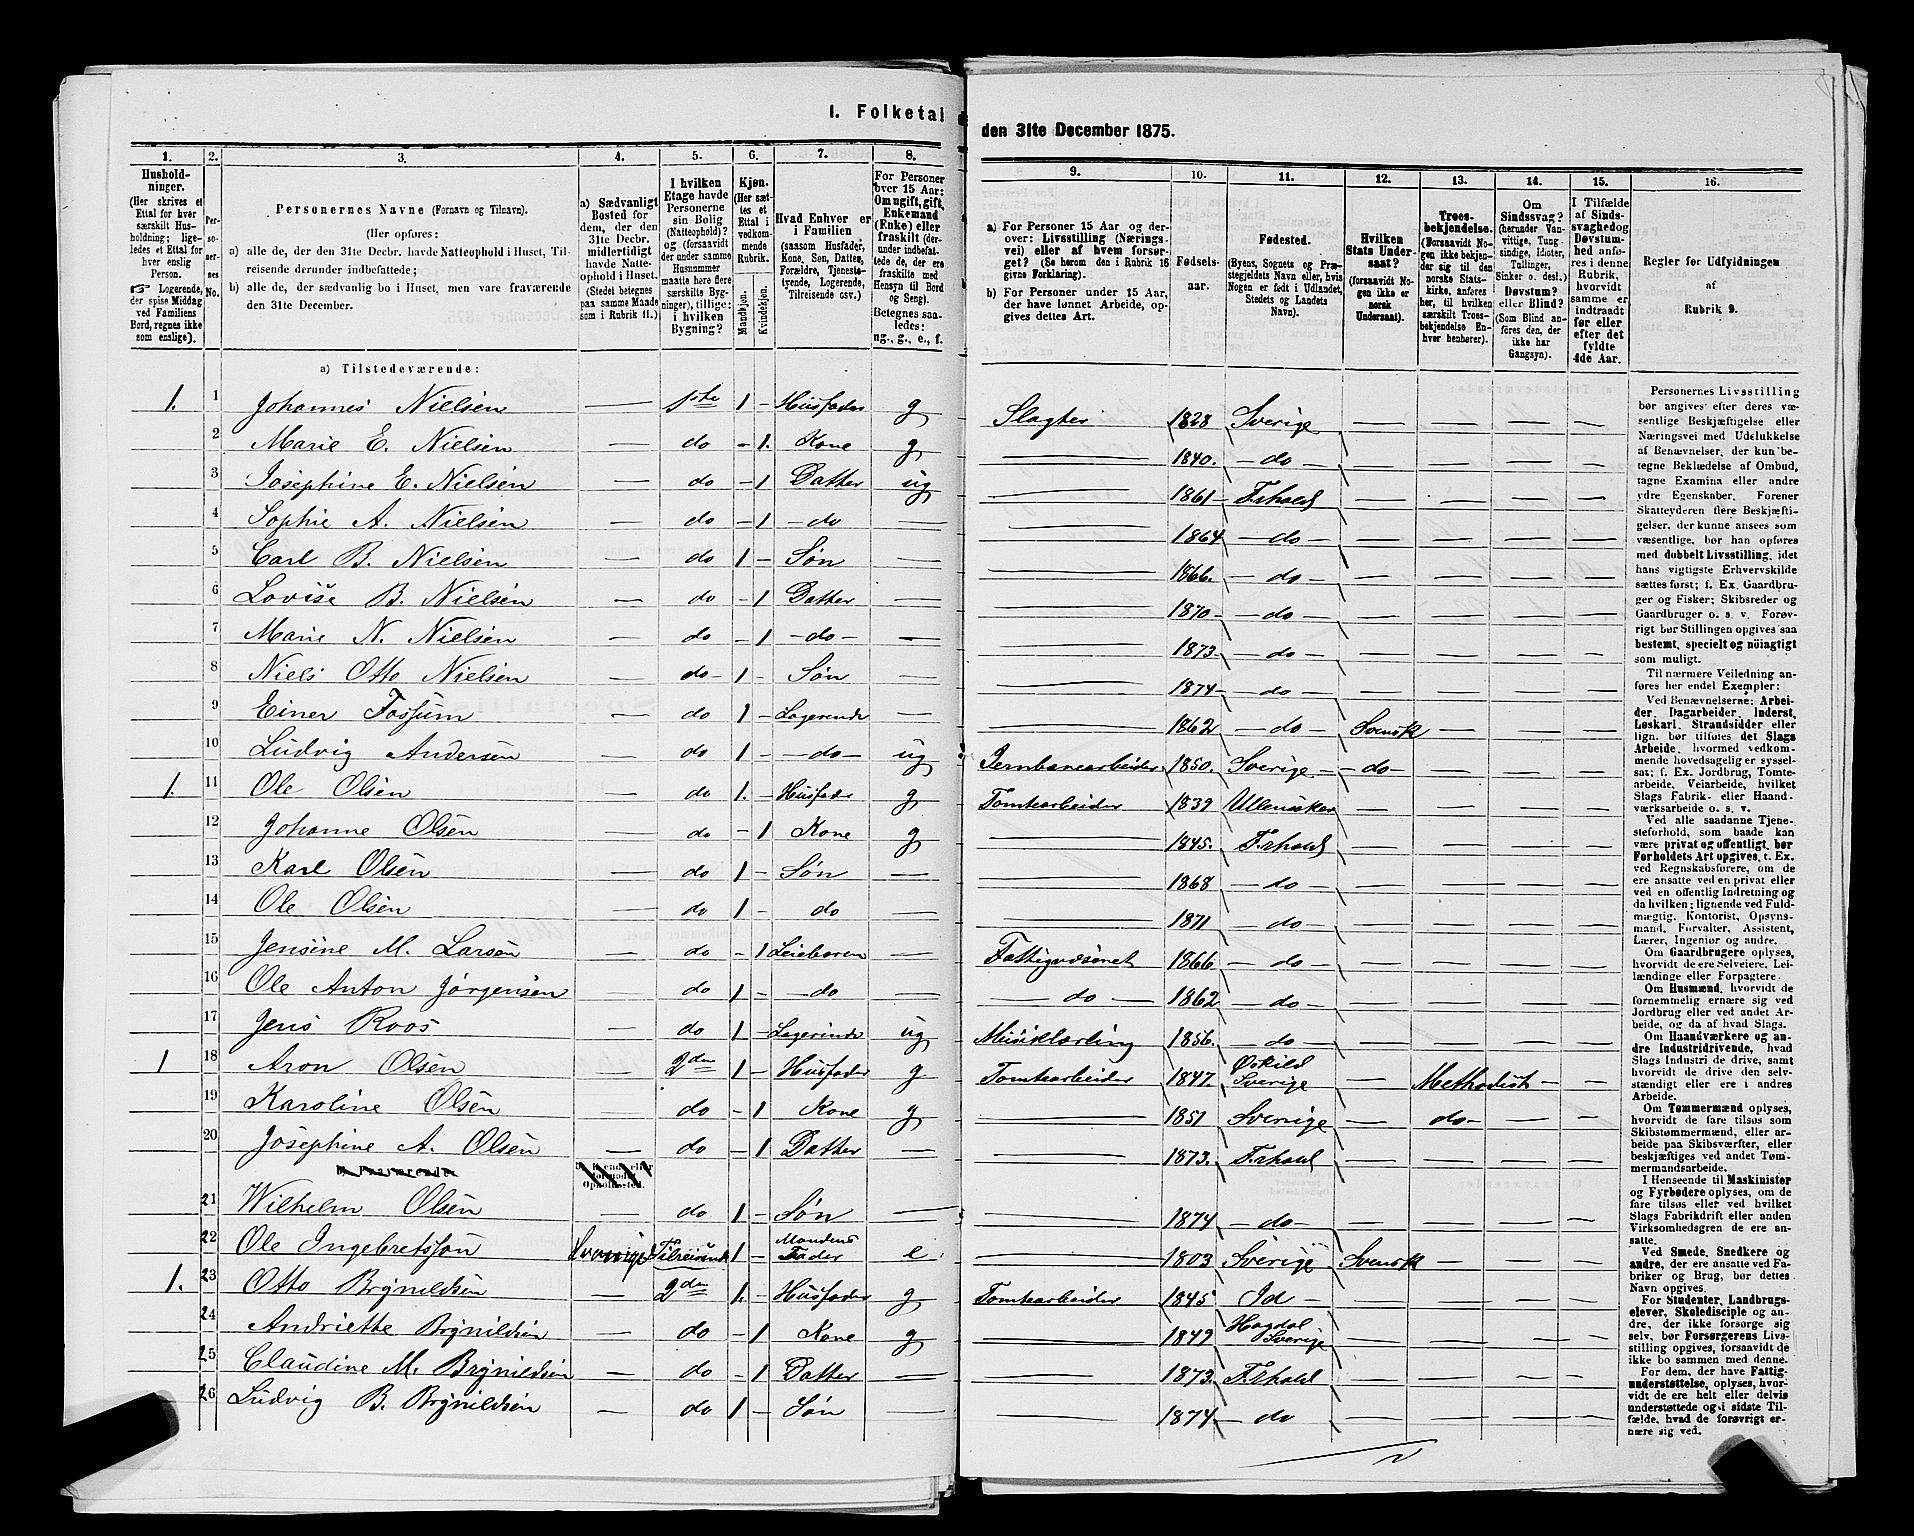 I. Folketal
den 31te December 1875.
1. 2. 3. 4. 5. 6. 7. 8.
Husholdninger.
(Her skrives et
Ettal for hver
særskilt Husholdning;
ligeledes et Ettal for
hver enslig
Person.
☞ Logerende,
der spise Middag
ved Familiens
Bord, regnes ikke
som enslige).
Personernes No.
Personernes Navne (Fornavn og Tilnavn).
(Her opføres:
a) alle de, der den 31te Decbr. havde Natteophold i Huset, Tilreisende derunder indbefattede;
b) alle de, der sædvanlig bo i Huset, men vare fraværende
den 31te December.
a) Sædvanligt
Bosted for
dem, der den
31te Decbr.
midlertidigt
havde Natteophold i Huset.
(Stedet betegnes
paa samme Maade
som i Rubrik 11.)
I hvilken
Etage havde
Personerne
sin Bolig
(Natteophold)?
og (forsaavidt
der under samme
Husnummer
maatte høre flere
særskilte Bygninger), tillige:
i hvilken
Bygning?
Kjøn.
(Her sættes et
Ettal i
vedkommende
Rubrik.)
Mandkjøn.
Kvindekjøn.
Hvad Enhver er
i Familien
(saasom Husfader,
Kone, Søn, Datter,
Forældre, Tjenestetyende, Logerende,
Tilreisende osv.)
For Personer
over 15 Aar:
Om ugift, gift,
Enkemand
(Enke) eller
fraskilt (derunder indbefattede de, der ere
fraskilte med
Hensyn til Bord
og Seng).
Betegnes saaledes:
ug., g., e., f.
9. 10. 11. 12. 13. 14. 15. 16.
a) For Personer 15 Aar og derover: Livsstilling (Næringsvei) eller af hvem forsørget? (Se herom den i Rubrik 16
givne Forklaring).
b) For Personer under 15 Aar,
der have lønnet Arbeide, opgives dettes Art.
Fødselsaar.
Fødested.
(Byens, Sognets og Præstegjeldets Navn eller, hvis
Nogen er født i Udlandet,
Stedets og Landets
Navn).
Hvilken
Stats Undersaat?
(forsaavidt Nogen ikke er
norsk
Undersaat).
Troesbekjendelse.
(Forsaavidt Nogen ikke bekjender sig til den
norske Statskirke, anføres
her, til hvilken
særskilt Troesbekjendelse Enhver henhører).
Om
Sindssvag?
(herunder Vanvittige, Tungsindige, Idioter,
Tullinger,
Sinker o. desl.)
Døvstum?
eller Blind?
(Som Blind anføres den, der
ikke har
Gangsyn).
I Tilfælde
af Sindssvaghed og
Døvstumhed anføres i denne
Rubrik,
hvorvidt
samme er
indtraadt
før eller
efter det
fyldte
4de Aar.
Regler for Udfyldningen
af
Rubrik 9.
a) Tilstedeværende:
1. 1 Johannes Nielsen — 1ste 1 — Husfader g Slagter 1828 Sverige — — — —
2 Marie E. Nielsen — do — 1. Kone g — 1840. — do — — — —
3 Josephine E. Nielsen — do — 1 Datter ug — 1861 — Frhald — — — —
4 Sophie A. Nielsen — do — 1 — do — — 1864 — do — — — —
5 Carl B. Nielsen — do 1 — Søn — — 1866. — do — — — —
6 Lovise B. Nielsen — do — 1 Datter — — 1870 — do — — — —
7 Marie N. Nielsen — do — 1 — do — — — 1873 — do — — — —
8 Niels Otto Nielsen — do — 1 — Søn — — 1874 — do — — — —
9 Einer Fossum — do 1 — Logerende — — 1862 — do — Svensk — — —
10 Ludvig Andersen — do 1 — — do — ug Jernbanearbeider 1850. Sverige — — do — — — —
1. 11 Ole Olsen — do 1. — Husfader g Tomtearbeider 1839 Ullensaker — — — —
12 Johanne Olsen — do — 1 Kone g — 1845. Frhald — — — —
13 Karl Olsen — do 1 — Søn — — 1868 — do — — — —
14 Ole Olsen — do 1 — do — — 1871 — do — — — —
15 Jensine M. Larsen — do — 1 Leieboren — Fattigvæsenet 1866 — do — — — —
16 Ole Anton Jørgensen do 1 — — do — — do — 1862 — do — — — —
17 Jens Roos — do 1 — Logerinde ug Musiklærling 1856. — do — — — —
1 18 Aron Olsen — 2den 1 — Husfader g Tomtearbeider 1847. Øskild Sverige — Methodist — —
19 Karoline Olsen — do — 1 Kone g — 1851 Sverige — do — — —
20 Josephine A. Olsen — do — 1 Datter — — 1873. Frhald — — — —
21 Wilhelm Olsen — do 1 — Søn — — 1874 — do — — — —
22 Ole Ingebretsson Sverige Tilreisende 1 — Mandens Fader e. — 1803 Sverige Svensk — — —
1. 23 Otto Brynildsen — 2den 1. — Husfader g Tomtearbeider 1845 Id — — — — —
24 Andriette Brynildsen — do — 1 Kone g — 1849 Hogdal Sverige — — — —
25 Claudine M. Brynildsen — do — 1 Datter — — 1873. Frhald — — — —
26 Ludvig B. Brynildsen — do 1 — Søn — — 1874 — do — — — —
Personernes Livsstilling
bør angives efter deres væsentlige Beskjæftigelse eller
Næringsvei med Udelukkelse
af Benævnelser, der kun betegne Beklædelse af Ombud,
tagne Examina eller andre
ydre Egenskaber. Forener
Skatteyderen flere Beskjæftigelser, der kunne ansees som
væsentlige, bør han opføres
med dobbelt Livsstilling, idet
hans vigtigste Erhvervskilde
sættes først; f. Ex. Gaardbruger og Fisker; Skibsreder og
Gaardbruger o. s. v. Forøvrigt bør Stillingen opgives saa
bestemt, specielt og nöiagtigt
som muligt.
Til nærmere Veiledning anføres her endel Exempler:
Ved Benævnelserne: Arbeider, Dagarbeider, Inderst,
Løskarl, Strandsidder eller
lign. bør tilføies det Slags
Arbeide, hvormed vedkommende hovedsagelig er sysselsat; f. Ex. Jordbrug, Tomtearbeide, Veiarbeide, hvilket
Slags Fabrik- eller Haandværksarbeide o. s. v.
Ved alle saadanne Tjenesteforhold, som baade kan
være privat og offentligt, bør
Forholdets Art opgives, t. Ex.
ved Regnskabsførere, om de
ere ansatte ved en privat eller
ved en offentlig Indretning og
da hvilken; lignende ved Fuldmægtig, Kontorist, Opsynsmand, Forvalter, Assistent,
Lærer, Ingeniør og andre.
Om Gaardbrugere oplyses,
hvorvidt de ere Selveiere, Leilændinge eller Forpagtere.
Om Husmænd, hvorvidt de
fornemmelig ernære sig ved
Jordbrug eller ved andet Arbeide, og da af hvad Slags.
Om Haandværkere og andre Industridrivende, hvad
Slags Industri de drive, samt
hvorvidt de drive den selvstændigt eller ere i andres
Arbeide.
Om Tømmermænd oplyses,
hvorvidt de fare tilsøs som
Skibstømmermænd, eller arbeide paa Skibsværfter, eller
beskjæftiges ved andet Tømmermandsarbeide.
I Henseende til Maskinister
og Fyrbødere oplyses, om de
fare tilsøs eller ved hvilket
Slags Fabrikdrift eller anden
Virksomhedsgren de ere ansatte.
Ved Smede, Snedkere og
andre, der ere ansatte ved Fabriker og Brug, bør dettes
Navn opgives.
For Studenter, Landbrugselever, Skoledisciple og andre, der ikke forsørge sig
selv, bør Forsørgerens Livsstilling opgives, forsaavidt de
ikke bo sammen med denne.
For dem, der have Fattigunderstøttelse, oplyses, hvorvidt de ere helt eller delvis
understøttede og i sidste Tilfælde, hvad de forøvrigt ernære sig ved.